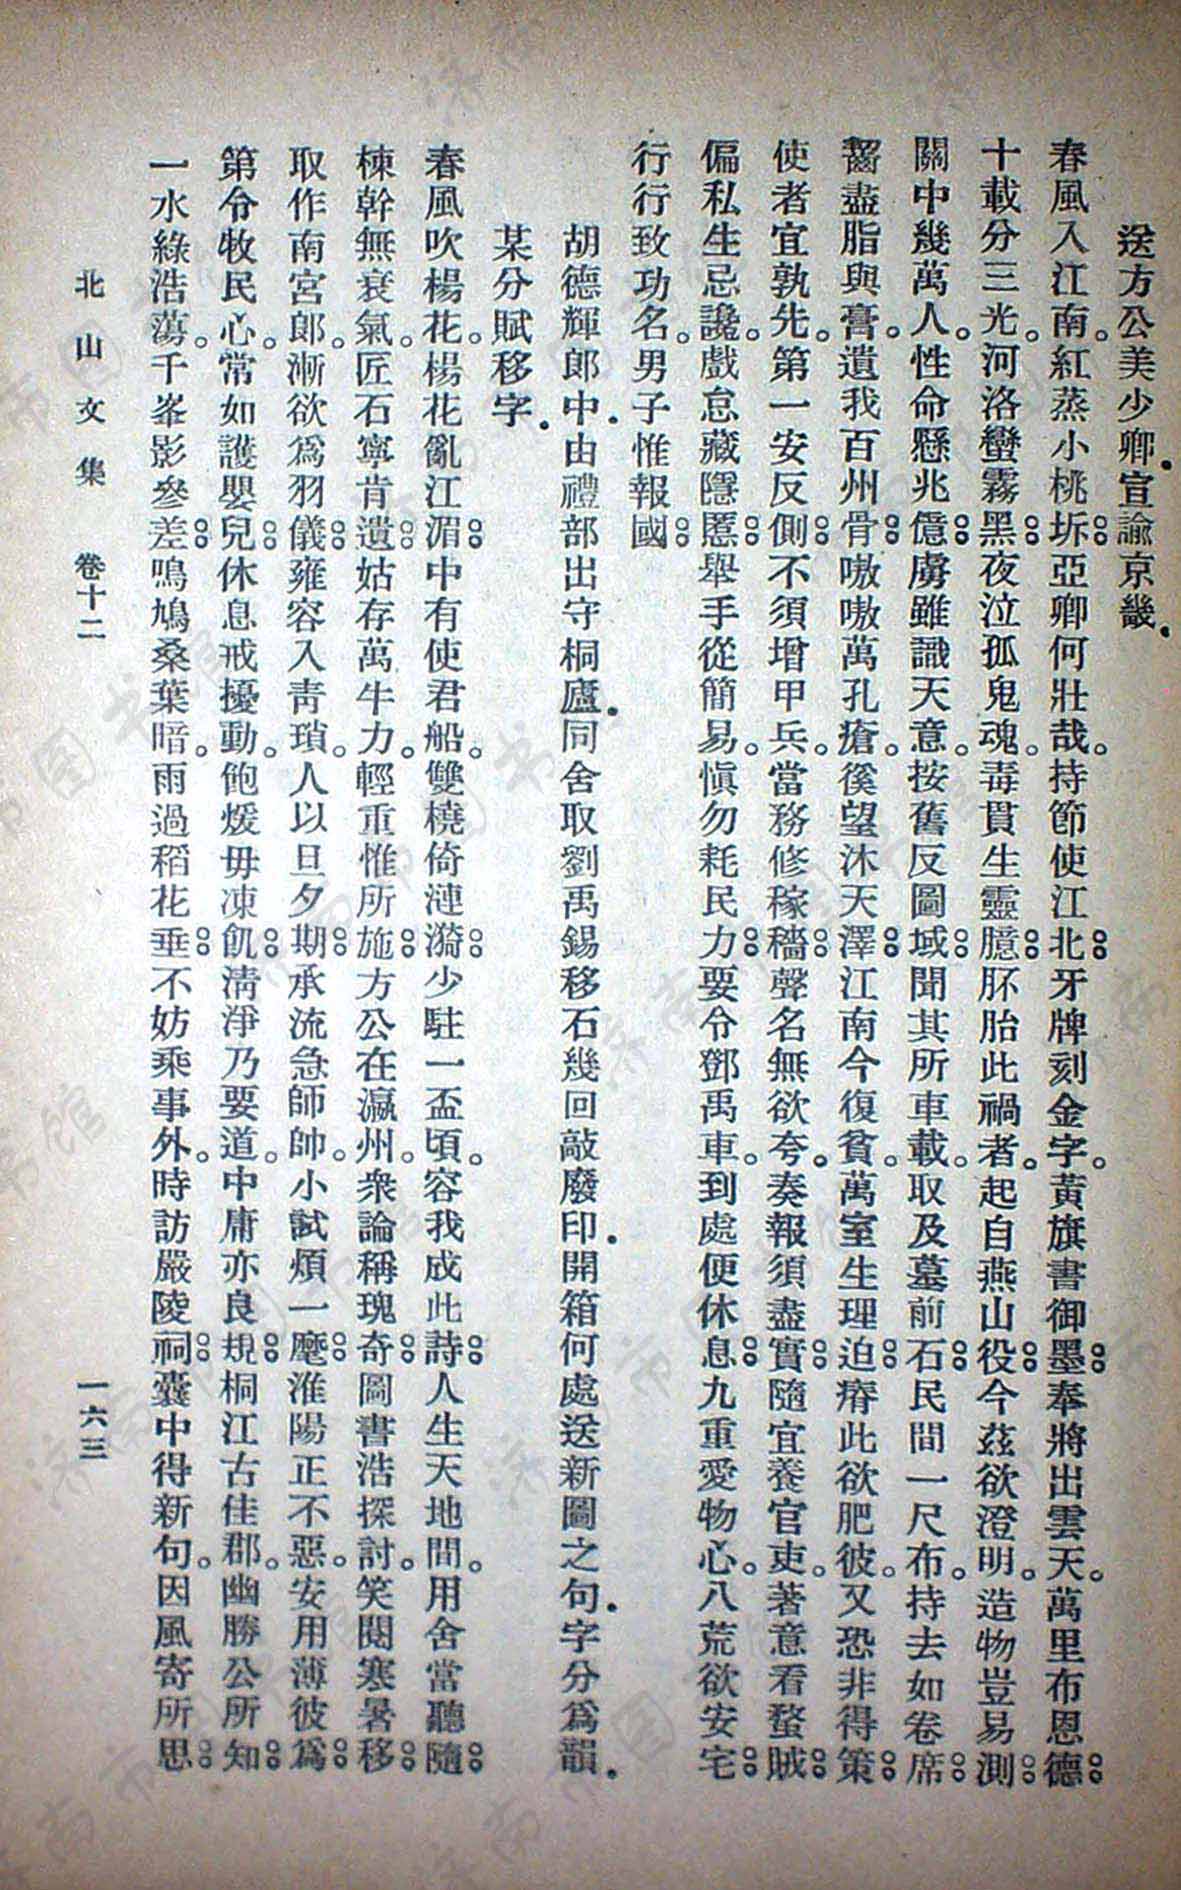 送方公美少卿宣諭京畿．
春風入江南。紅蒸小桃坼。亞卿何壯哉。持節使江北。牙牌刻金字。黃旗書御墨。奉將出雲天。萬里布恩德。
十載分三光。河洛蠻霧黑。夜泣孤鬼魂。毒貫生靈臆。胚胎此禍者。起自燕山役。今茲欲澄明。造物豈易測。
關中幾萬人。性命懸兆億。虜雖識天意。按舊反圖域。聞其所車載。取及墓前石。民間一尺布。持去如卷席。
齧盡脂與膏。遺我百州骨。嗷嗷萬孔瘡。徯望沐天澤。江南今復貧。萬室生理迫。瘠此欲肥彼。又恐非得策。
使者宜孰先。第一安反側。不須增甲兵。當務修稼穡。聲名無欲夸。奏報須盡實。隨宜養官吏。著意看蝥賊。
偏私生忌讒。戲怠藏隱慝。舉手從簡易。愼勿耗民力。要令鄧禹車。到處便休息。九重愛物心。八荒欲安宅。
行行致功名。男子惟報國。
胡德輝郎中．由禮部出守桐廬．同舍取劉禹錫移石幾回敲廢印．開箱何處送新圖之句．字分爲韻．
某分賦移字．
春風吹楊花。楊花亂江湄。中有使君船。雙橈倚漣漪。少駐一盃頃。容我成此詩。人生天地間。用舍當聽隨。
棟幹無衰氣。匠石寧肯遺。姑存萬牛力。輕重惟所施。方公在瀛州。衆論稱瑰奇。圖書浩探討。笑閱寒暑移。
取作南宮郎。漸欲爲羽儀。雍容入青瑣。人以旦夕期。承流急師帥。小試煩一麾。淮陽正不惡。安用薄彼爲。
第令牧民心。常如護嬰兒。休息戒擾動。飽煖毋凍飢。清淨乃要道。中庸亦良規。桐江古佳郡。幽勝公所知。
一水綠浩蕩。千峯影參差。鳴鳩桑葉暗。雨過稻花垂。不妨乘事外。時訪嚴陵祠。囊中得新句。因風寄所思。
北山文集 卷十二 一六三